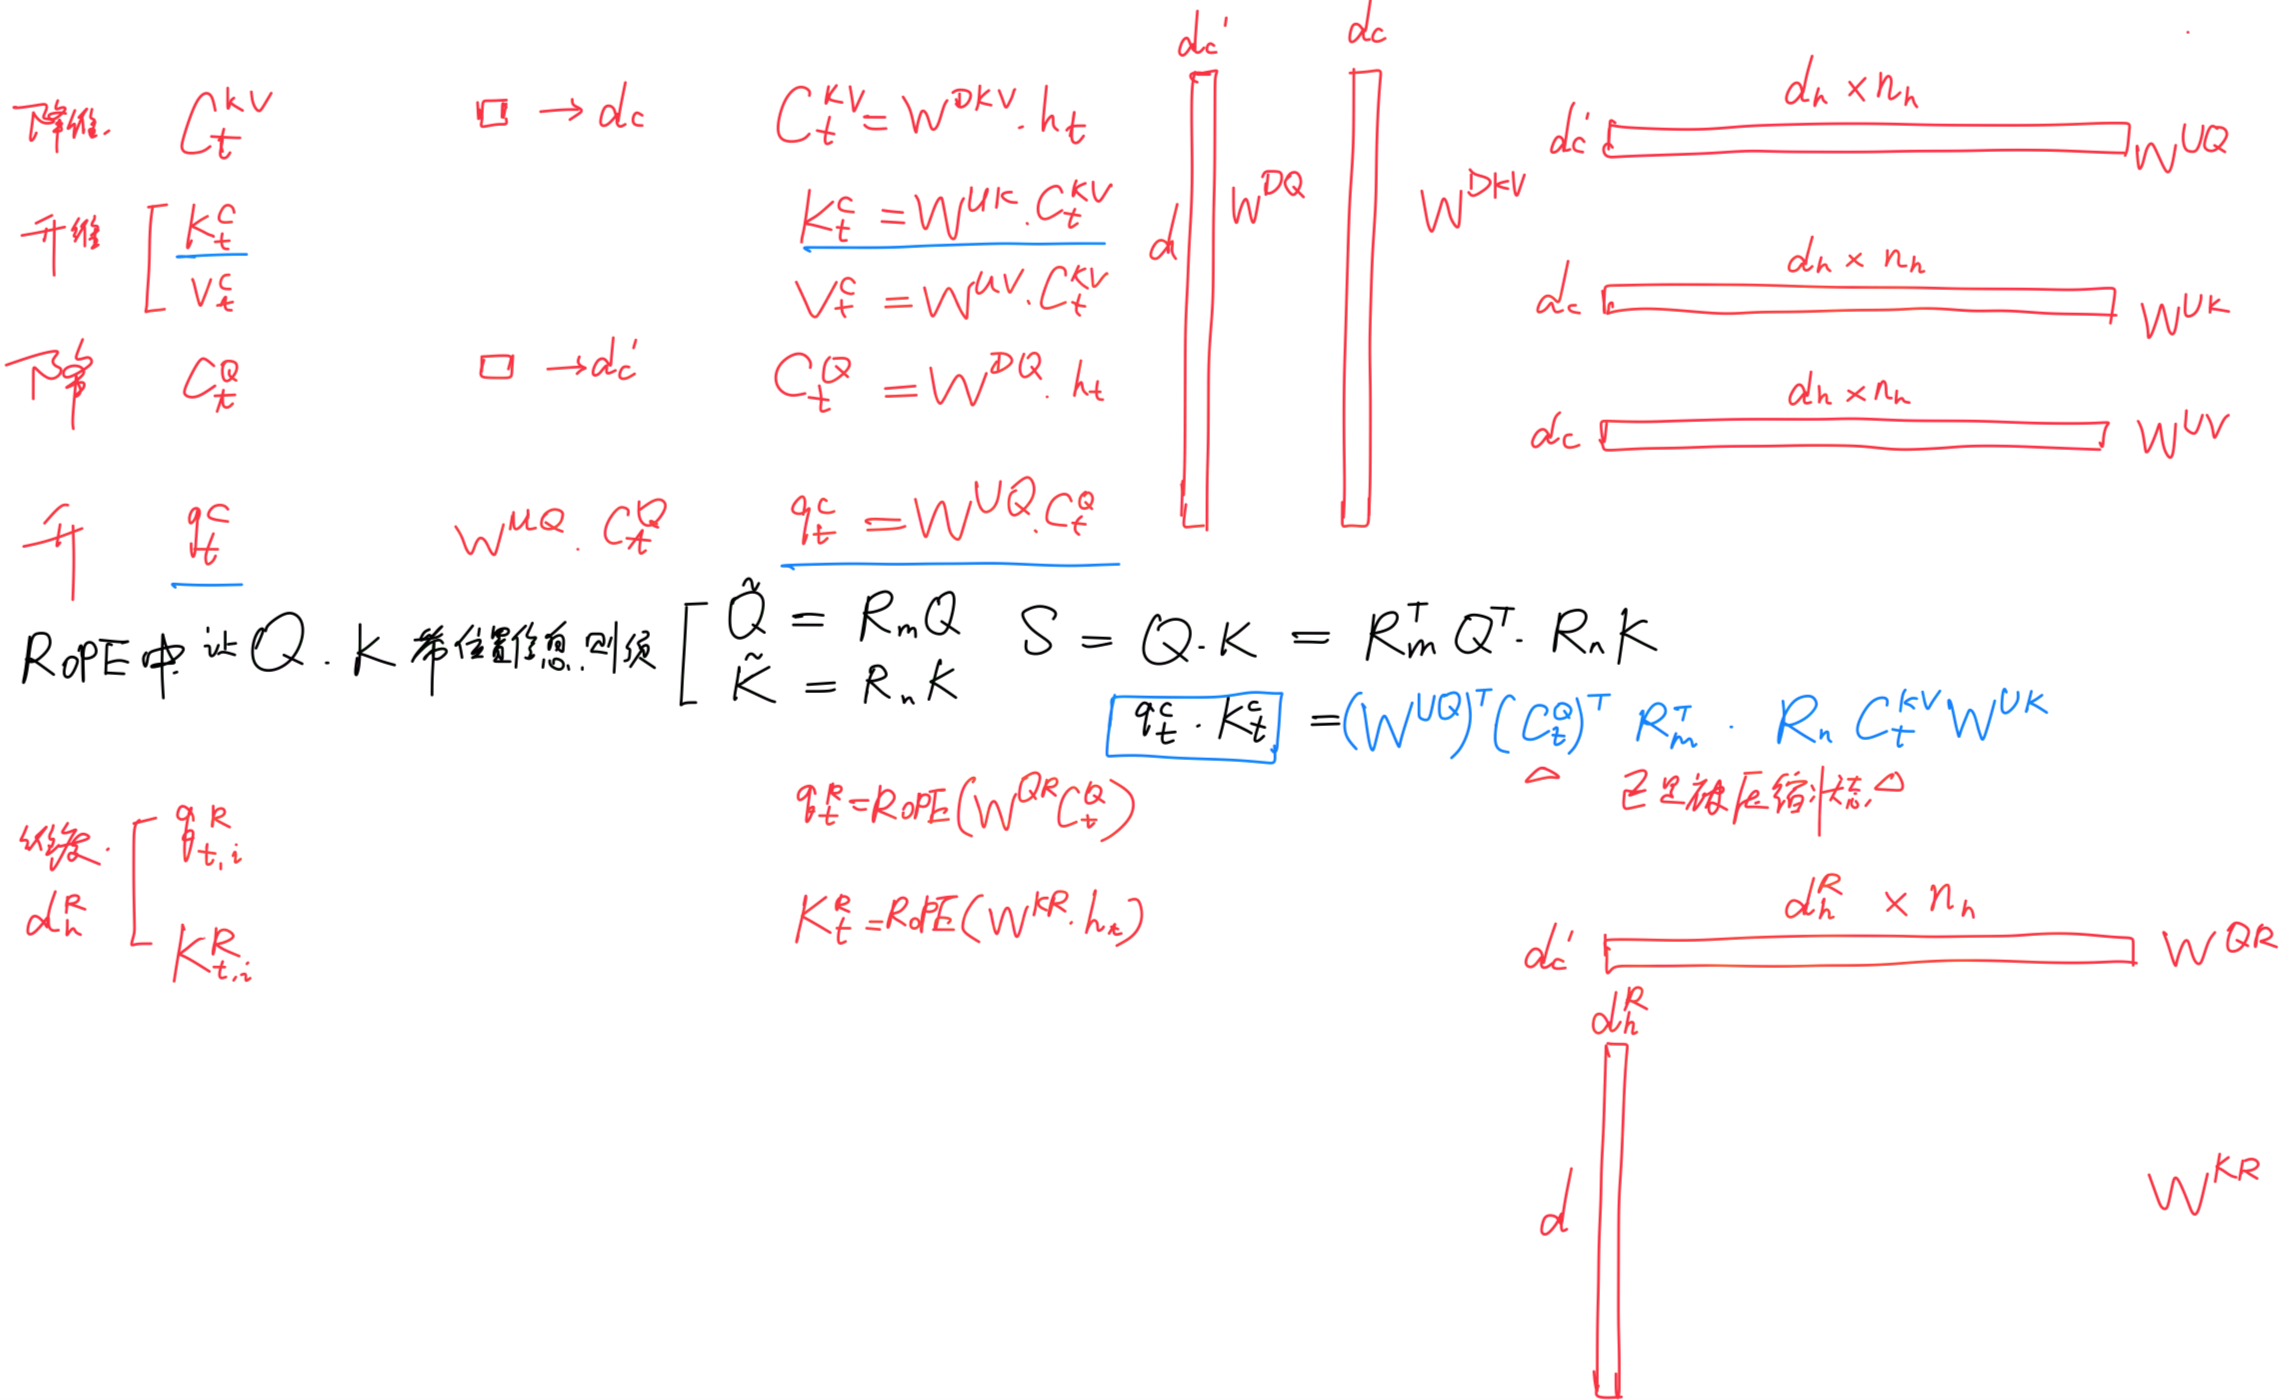 下降维. C_t^{KV} □ → d_c C_t^{KV} = W^{DKV} · h_t
升维 [ k_t^C K_t^C = W^{UK} · C_t^{KV}
V_t^C V_t^C = W^{UV} · C_t^{KV}
下降 C_t^Q □ → d_c' C_t^Q = W^{DQ} · h_t
升 q_t^C W^{UQ} · C_t^Q q_t^C = W^{UQ} · C_t^Q
d_c'
d W^{DQ}
d_c
W^{DKV}
d_h × n_h
d_c' W^{UQ}
d_h × n_h
d_c W^{UK}
d_h × n_h
d_c W^{UV}
RoPE中 让 Q · K 带位置信息. 则须 [ Q̃ = R_m Q S = Q · K = R_m^T Q^T · R_n K
K̃ = R_n K
q_t^C · K_t^C = (W^{UQ})^T (C_t^Q)^T R_m^T · R_n C_t^{KV} W^{UK}
△ 已是被压缩状态 △
维度. d_h^R [ q_{t,i}^R q_t^R = RoPE(W^{QR} C_t^Q)
K_{t,i}^R K_t^R = RoPE(W^{KR} · h_t)
d_h^R × n_h
d_c' W^{QR}
d_h^R
d W^{KR}